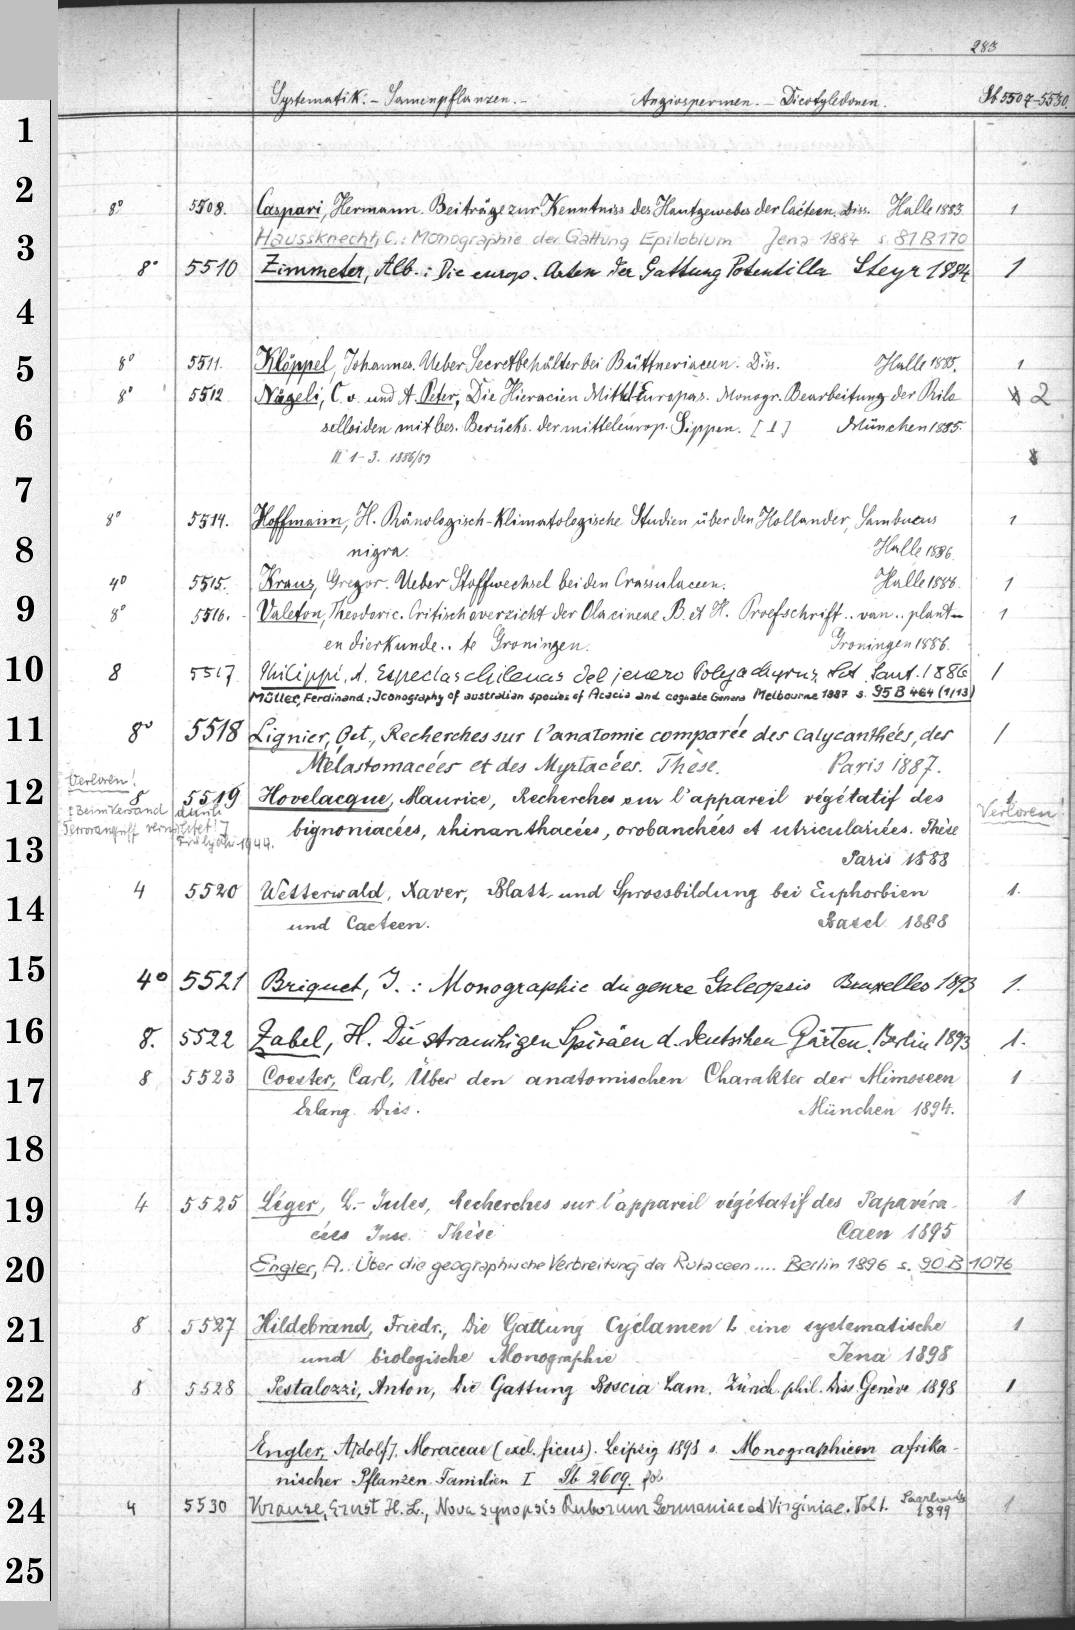 283
Systematik: - Samenpflanzen. - Angiospermen. - Dicotyledonen. Sb 5507-5530.
1
2
8° 5508. Caspari, Hermann. Beiträge zur Kenntniss des Hautgewebes der Cacteen. Diss. Halle 1883 1
3
Haussknecht, C.: Monographie der Gattung Epilobium Jena 1884 s. 81 B 170
8° 5510 Zimmeter, Alb.: Die europ. Arten der Gattung Potentilla Steyr 1884 1
4
5
8° 5511. Klöppel, Johannes. Ueber Secretbehälter bei Büttneriaceen. Diss. Halle 1885. 1
8° 5512 Nägeli, C. v. und A. Peter, Die Hieracien Mittel-Europas. Monogr. Bearbeitung der Pilo 2
6
selloiden mit bes. Berücks. der mitteleurop. Sippen. [I] München 1885.
II 1-3. 1886/89
7
8° 5514. Hoffmann, H. Phänologisch-Klimatologische Studien über den Hollander, Sambucus 1
8
nigra. Halle 1886.
4° 5515. Kraus, Gregor. Ueber Stoffwechsel bei den Crassulaceen. Halle 1886. 1
9
8° 5516. Valeton, Theodoric. Critisch overzicht der Olacineae B. et H. Proefschrift .. van .. plant- 1
en dierkunde .. te Groningen. Groningen 1886.
10
8 5517 Philippi, A. Especias chilenas del jenero Polyachyrus Sant. 1886 1
Müller, Ferdinand: Iconography of australian species of Acacia and cognate Genera Melbourne 1887 s. 95 B 464 (1/13)
11
8° 5518 Lignier, Oct., Recherches sur l'anatomie comparée des Calycanthées, des 1
Mélastomacées et des Myrtacées. Thèse. Paris 1887.
12
Verloren!
8 5519 Hovelacque, Maurice, Recherches sur l'appareil végétatif des 1
[Beim Versand durch
Verloren!
Terrorangriff vernichtet!]
Frühjahr 1944.
bignoniacées, rhinanthacées, orobanchées et utriculariées. Thèse
13
Paris 1888
4 5520 Wetterwald, Xaver, Blatt- und Sprossbildung bei Euphorbien 1.
14
und Cacteen. Basel 1888
15
4° 5521 Briquet, J.: Monographie du genre Galeopsis Bruxelles 1893 1.
16
8. 5522 Zabel, H. Die strauchigen Spiräen d. deutschen Gärten. Berlin 1893 1.
17
8 5523 Coester, Carl, Über den anatomischen Charakter der Mimoseen 1
Erlang. Diss. München 1894.
18
19
4 5525 Léger, L.-Jules, Recherches sur l'appareil végétatif des Papavéra- 1
cées Juss. Thèse Caen 1895
20
Engler, A.. Über die geographische Verbreitung der Rutaceen .... Berlin 1896 s. 90 B 1076
21
8 5527 Hildebrand, Friedr., Die Gattung Cyclamen L. eine systematische 1
und biologische Monographie Jena 1898
22
8 5528 Pestalozzi, Anton, Die Gattung Boscia Lam. Zürich. phil. Diss. Genève 1898 1
23
Engler, A[dolf]. Moraceae (excl. ficus). Leipzig 1898 s. Monographieen afrika-
nischer Pflanzen-Familien I Sb 2609. fol
24
4 5530 Krause, Ernst H. L., Nova synopsis Ruborum Germaniae et Virginiae. Vol 1. Saarlouis 1899 1
25